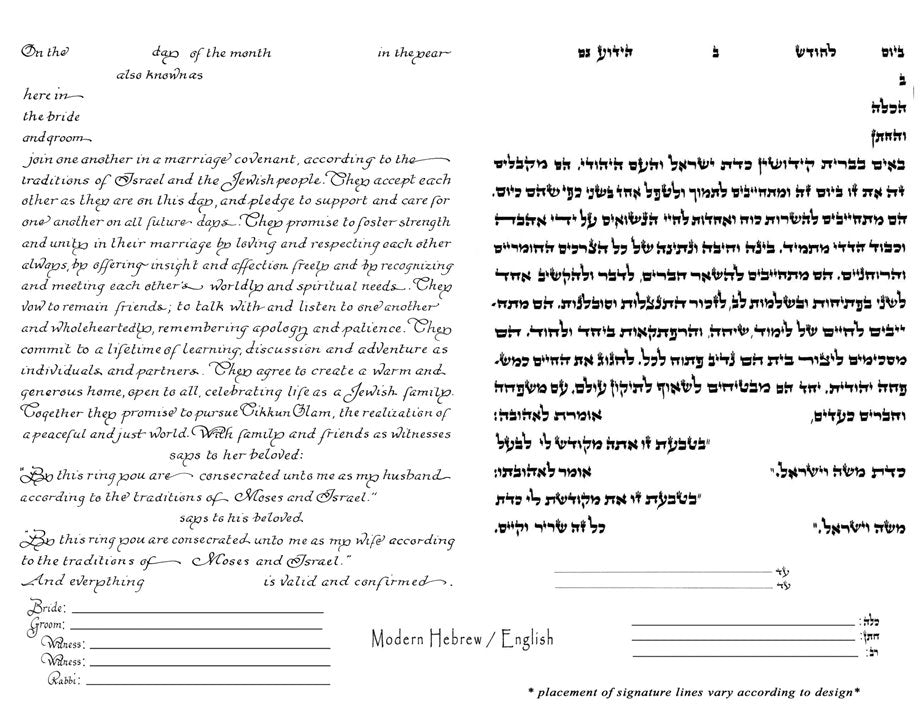 On the day of the month in the year
also known as
here in
the bride
and groom
join one another in a marriage covenant, according to the
traditions of Israel and the Jewish people. They accept each
other as they are on this day, and pledge to support and care for
one another on all future days. They promise to foster strength
and unity in their marriage by loving and respecting each other
always, by offering insight and affection freely and by recognizing
and meeting each other's worldly and spiritual needs. They
vow to remain friends; to talk with and listen to one another
and wholeheartedly, remembering apology and patience. They
commit to a lifetime of learning, discussion and adventure as
individuals and partners. They agree to create a warm and
generous home, open to all, celebrating life as a Jewish family.
Together they promise to pursue Tikkun Olam, the realization of
a peaceful and just world. With family and friends as witnesses
says to her beloved:
"By this ring you are consecrated unto me as my husband
according to the traditions of Moses and Israel."
says to his beloved
"By this ring you are consecrated unto me as my wife according
to the traditions of Moses and Israel."
And everything is valid and confirmed.
Bride:
Groom:
Witness:
Witness:
Rabbi:
ביום לחודש ב הידוע גם
ב
הכלה
והחתן
באים בברית קידושין כדת ישראל והעם היהודי. הם מקבלים
זה את זו ביום זה ומתחייבים לתמוך ולטפל אחד בשני כפי שהם כיום.
הם מתחייבים להשרות כוח ואחדות לחיי הנישואים על ידי אהבה
וכבוד הדדי מתמיד, בינה וחיבה ונתינה של כל הצרכים החומריים
והרוחניים. הם מתחייבים להשאר חברים, לדבר ולהקשיב אחד
לשני בפתיחות ובשלמות לב, לזכור התנצלות וסובלנות. הם מתח-
ייבים לחיים של לימוד, שיחה, והרפתקאות ביחד ולחוד. הם
מסכימים ליצור בית חם נדיב פתוח לכל, לחגוג את החיים כמש-
פחה יהודית. יחד הם מבטיחים לשאוף לתיקון עולם. עם משפחה
וחברים כעדים, אומרת לאהובה:
"בטבעת זו אתה מקודש לי לבעל
כדת משה וישראל." אומר לאהובתו:
"בטבעת זו את מקודשת לי כדת
משה וישראל." כל זה שריר וקיים.
עד
עד
כלה:
חתן:
רב:
Modern Hebrew / English
* placement of signature lines vary according to design*